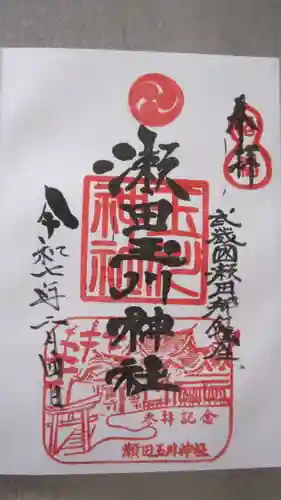 奉拝
武蔵國瀬田鎮座
瀬田玉川神社
令和七年二月四日
玉川神社
参拝記念
瀬田玉川神社